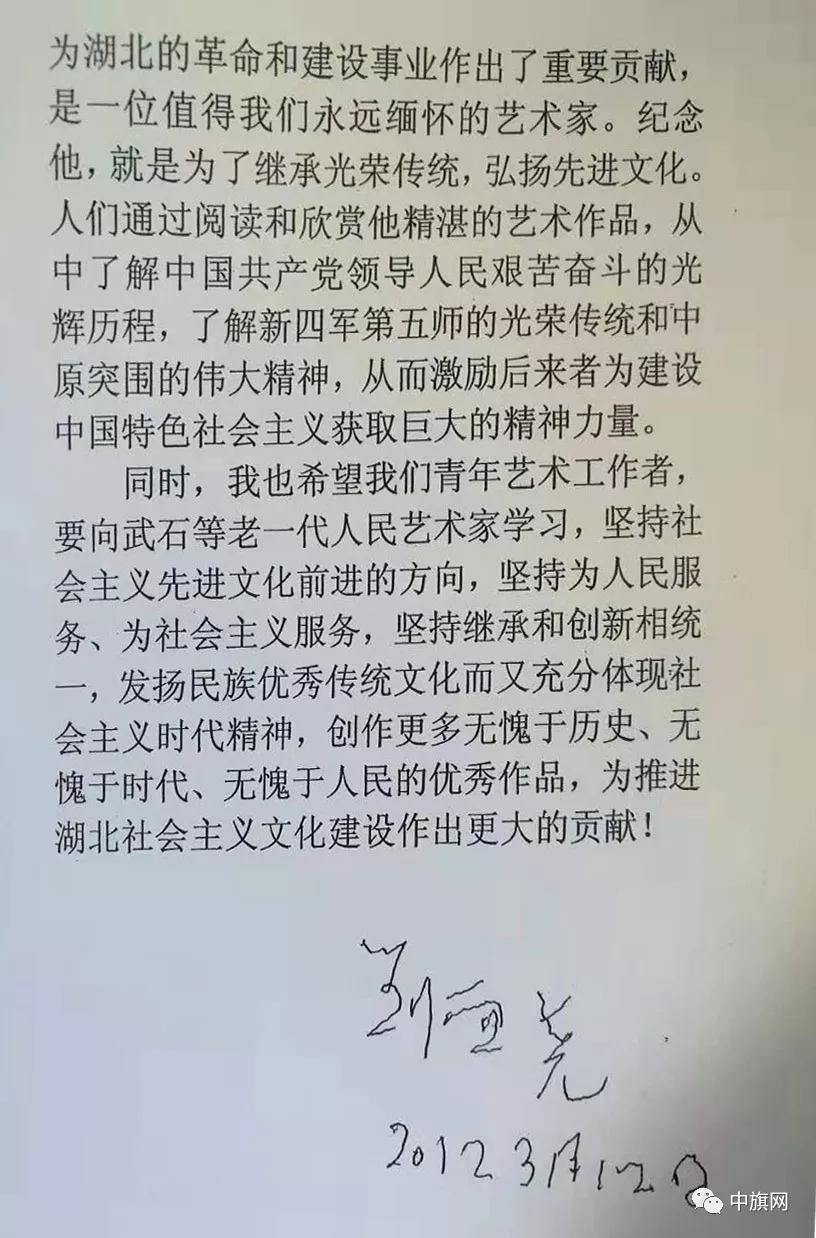 为湖北的革命和建设事业作出了重要贡献，
是一位值得我们永远缅怀的艺术家。纪念
他，就是为了继承光荣传统，弘扬先进文化。
人们通过阅读和欣赏他精湛的艺术作品，从
中了解中国共产党领导人民艰苦奋斗的光
辉历程，了解新四军第五师的光荣传统和中
原突围的伟大精神，从而激励后来者为建设
中国特色社会主义获取巨大的精神力量。
同时，我也希望我们青年艺术工作者，
要向武石等老一代人民艺术家学习，坚持社
会主义先进文化前进的方向，坚持为人民服
务、为社会主义服务，坚持继承和创新相统
一，发扬民族优秀传统文化而又充分体现社
会主义时代精神，创作更多无愧于历史、无
愧于时代、无愧于人民的优秀作品，为推进
湖北社会主义文化建设作出更大的贡献！
刘西尧
2012 3月12日
中旗网